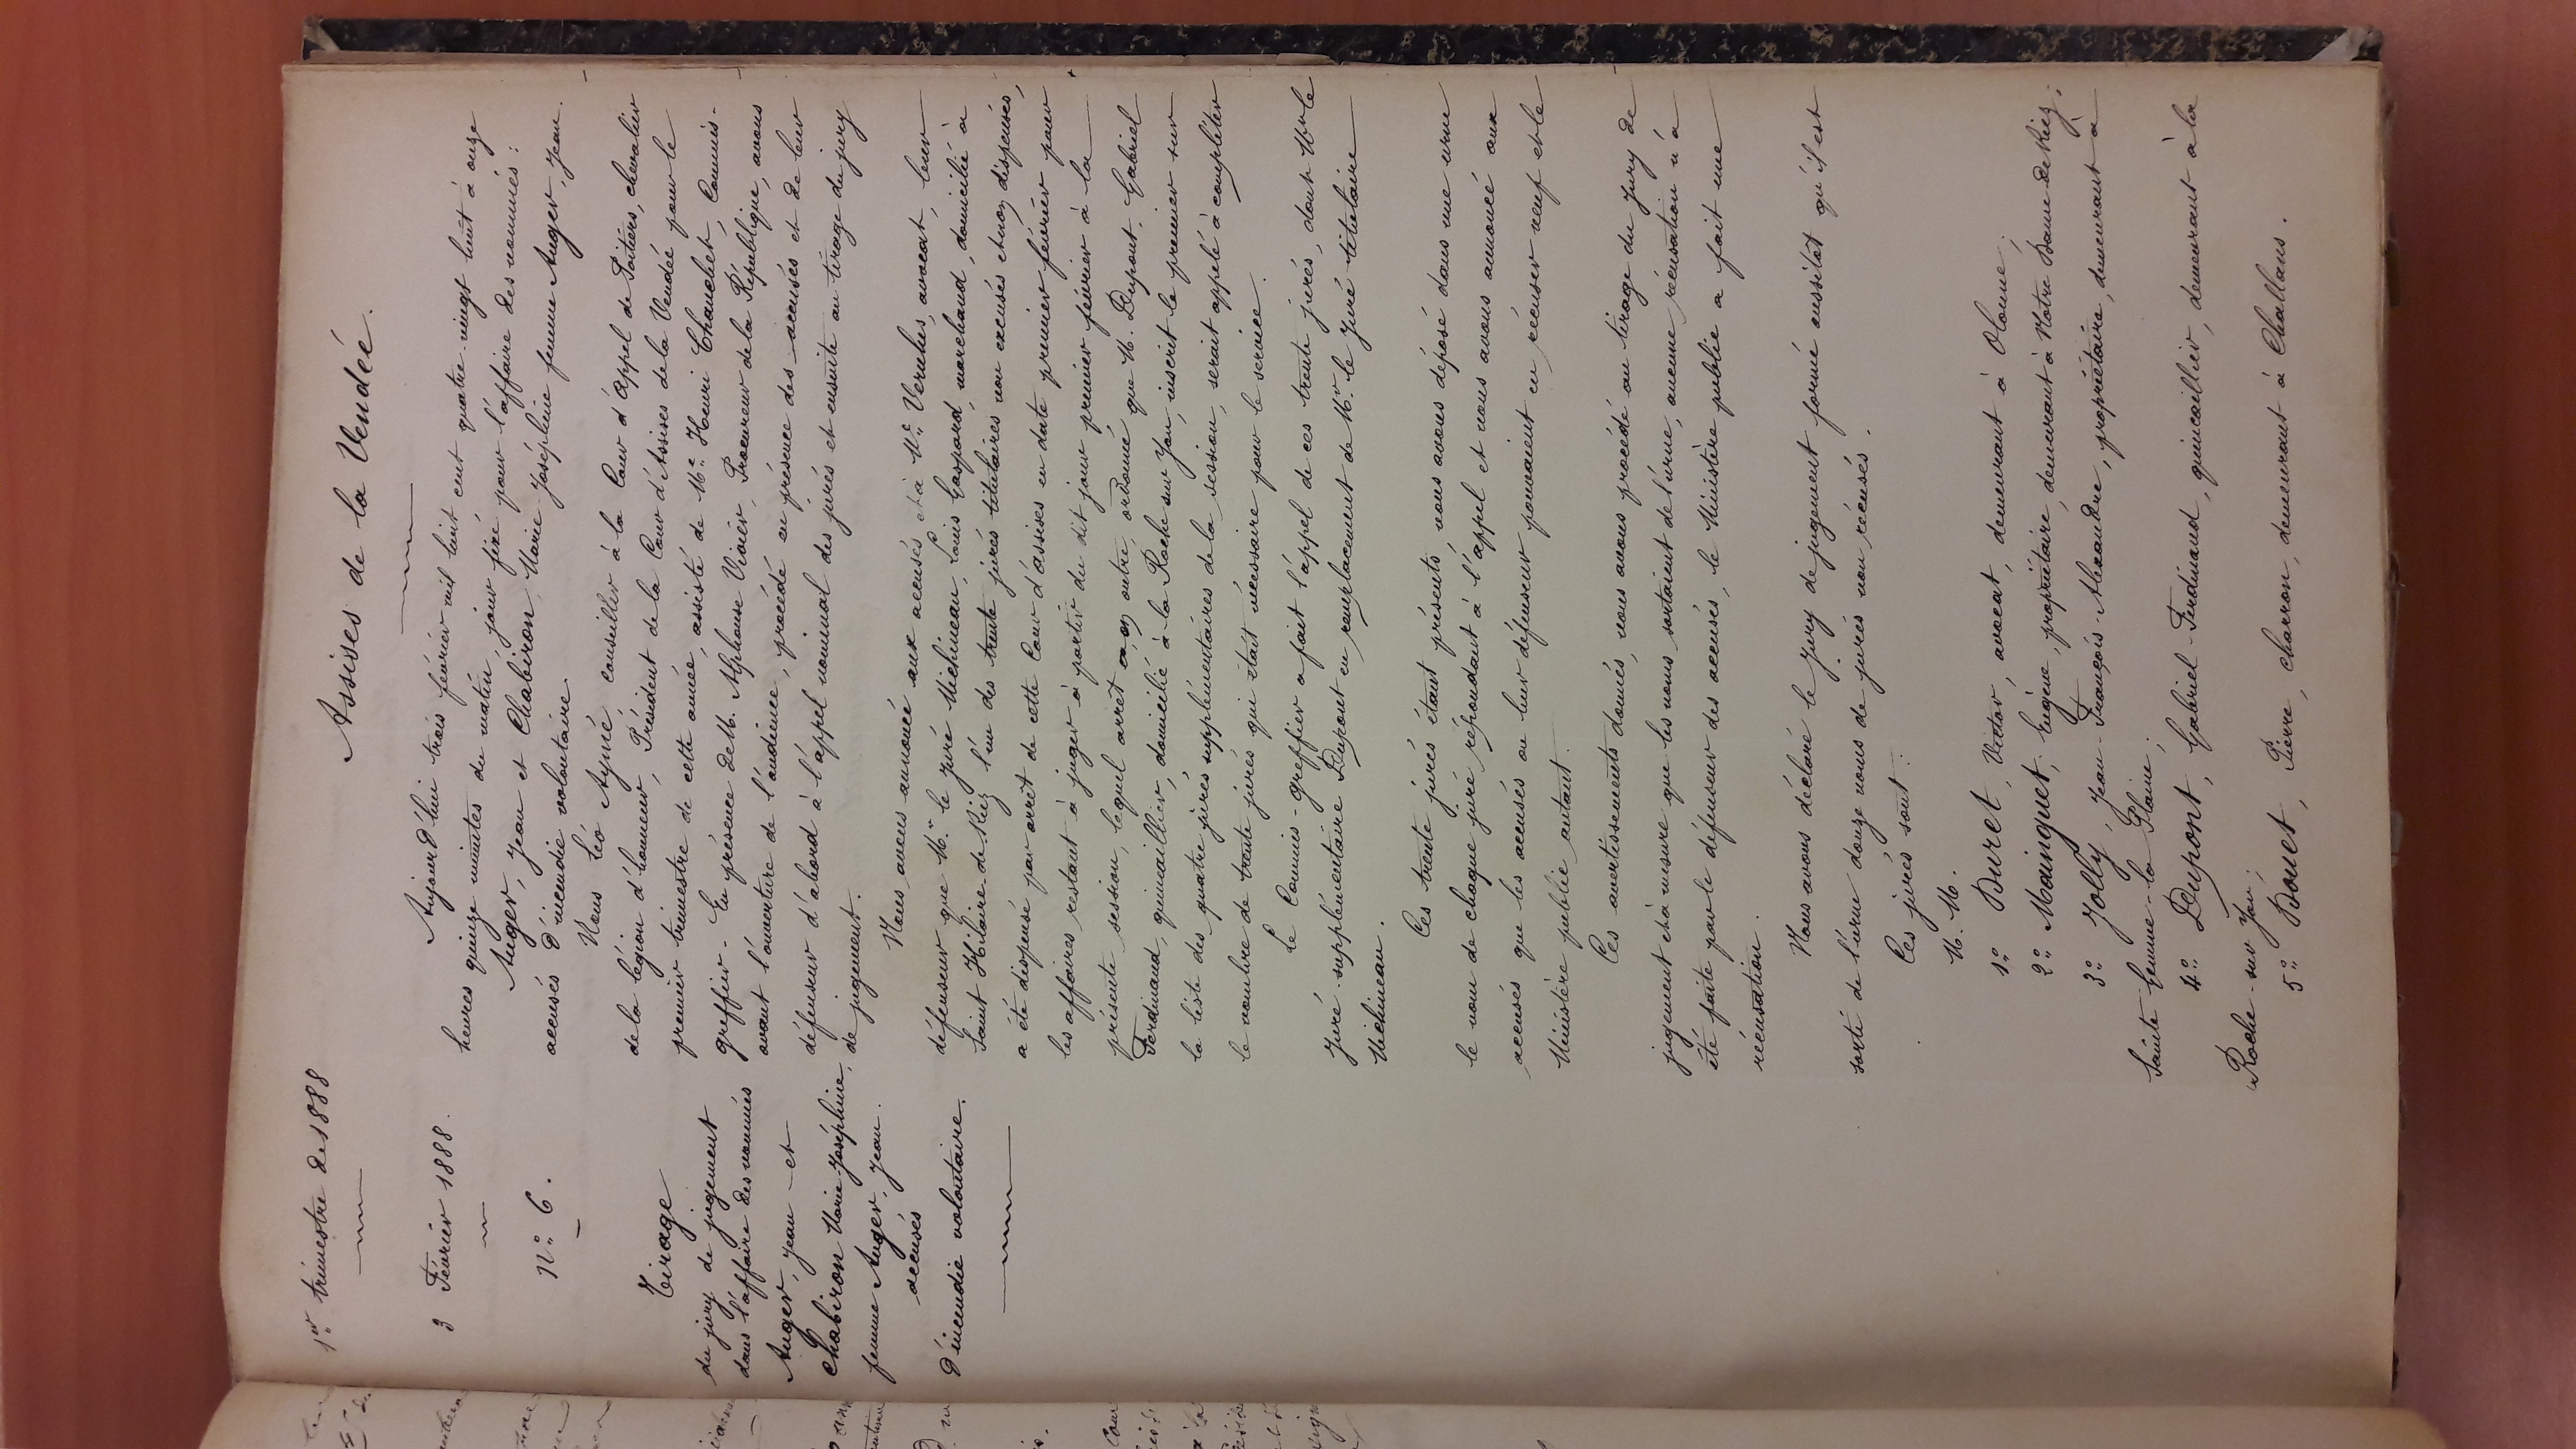 1er trimestre de 1888
Assises de la Vendée.
3 Février 1888.
N° 6.
Tirage
du jury de jugement
dans l'affaire des nommés
Auger, Jean et
Chabiron Marie Joséphine,
femme Auger, Jean.
accusés
d'incendie volontaire.
Aujourd'hui trois février mil huit cent quatre-vingt huit à onze
heures quinze minutes du matin, jour fixé pour l'affaire des nommés :
Auger, Jean et Chabiron, Marie Joséphine femme Auger, Jean.
accusés d'incendie volontaire.
Nous Léo Aymé conseiller à la Cour d'Appel de Poitiers, chevalier
de la légion d'honneur, Président de la Cour d'Assises de la Vendée pour le
premier trimestre de cette année, assisté de Me Henri Chauchet, Commis-
greffier - En présence de M. Alphonse Vivier, Procureur de la République, avons
avant l'ouverture de l'audience, procédé en présence des accusés et de leur
défenseur d'abord à l'appel nominal des jurés et ensuite au tirage du jury
de jugement.
Nous avons annoncé aux accusés et à Me Verulus, avocat, leur
défenseur que Mr le juré Michineau, Louis Gaspard, marchand, domicilié à
Saint Hilaire de Riez l'un des trente jurés titulaires non excusés et non dispensés,
a été dispensé par arrêt de cette Cour d'assises en date premier février pour
les affaires restant à juger à partir du dit jour premier février à la
présente session, lequel arrêt a, en outre, ordonné que M. Dupont Gabriel
Ferdinand, quincaillier, domicilié à la Roche sur Yon, inscrit le premier sur
la liste des quatre jurés supplémentaires de la session, serait appelé à compléter
le nombre de trente jurés qui était nécessaire pour le service.
Le Commis-greffier a fait l'appel de ces trente jurés, dont Mr le
Juré supplémentaire Dupont en remplacement de Mr le Juré titulaire
Michineau.
Ces trente jurés étant présents, nous avons déposé dans une urne
le nom de chaque juré répondant à l'appel et nous avons annoncé aux
accusés que les accusés ou leur défenseur pouvaient en récuser neuf et le
Ministère public autant.
Ces avertissements donnés, nous avons procédé au tirage du Jury de
jugement et à mesure que les noms sortaient de l'urne, aucune récusation n'a
été faite par le défenseur des accusés, le Ministère public a fait une
récusation.
Nous avons déclaré le Jury de jugement formé aussitôt qu'il est
sorti de l'urne douze noms de jurés non récusés.
Ces jurés sont :
M. M.
1° Buret, Victor, avocat, demeurant à Olonne ;
2° Mainguet, Eugène, propriétaire, demeurant à Notre Dame de Riez ;
3° Jolly, Jean-François-Alexandre, propriétaire, demeurant à
Sainte Gemme-la-Plaine ;
4° Dupont, Gabriel-Ferdinand, quincaillier, demeurant à la
Roche-sur Yon ;
5° Bouet, Pierre, charron, demeurant à Challans.